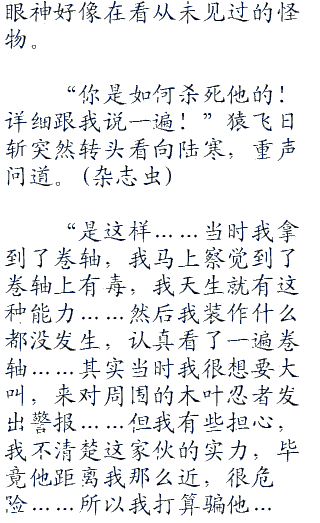 眼神好像在看从未见过的怪
物。
“你是如何杀死他的！
详细跟我说一遍！”猿飞日
斩突然转头看向陆寒，重声
问道。(杂志虫)
“是这样……当时我拿
到了卷轴，我马上察觉到了
卷轴上有毒，我天生就有这
种能力……然后我装作什么
都没发生，认真看了一遍卷
轴……其实当时我很想要大
叫，来对周围的木叶忍者发
出警报……但我有些担心，
我不清楚这家伙的实力，毕
竟他距离我那么近，很危
险……所以我打算骗他…